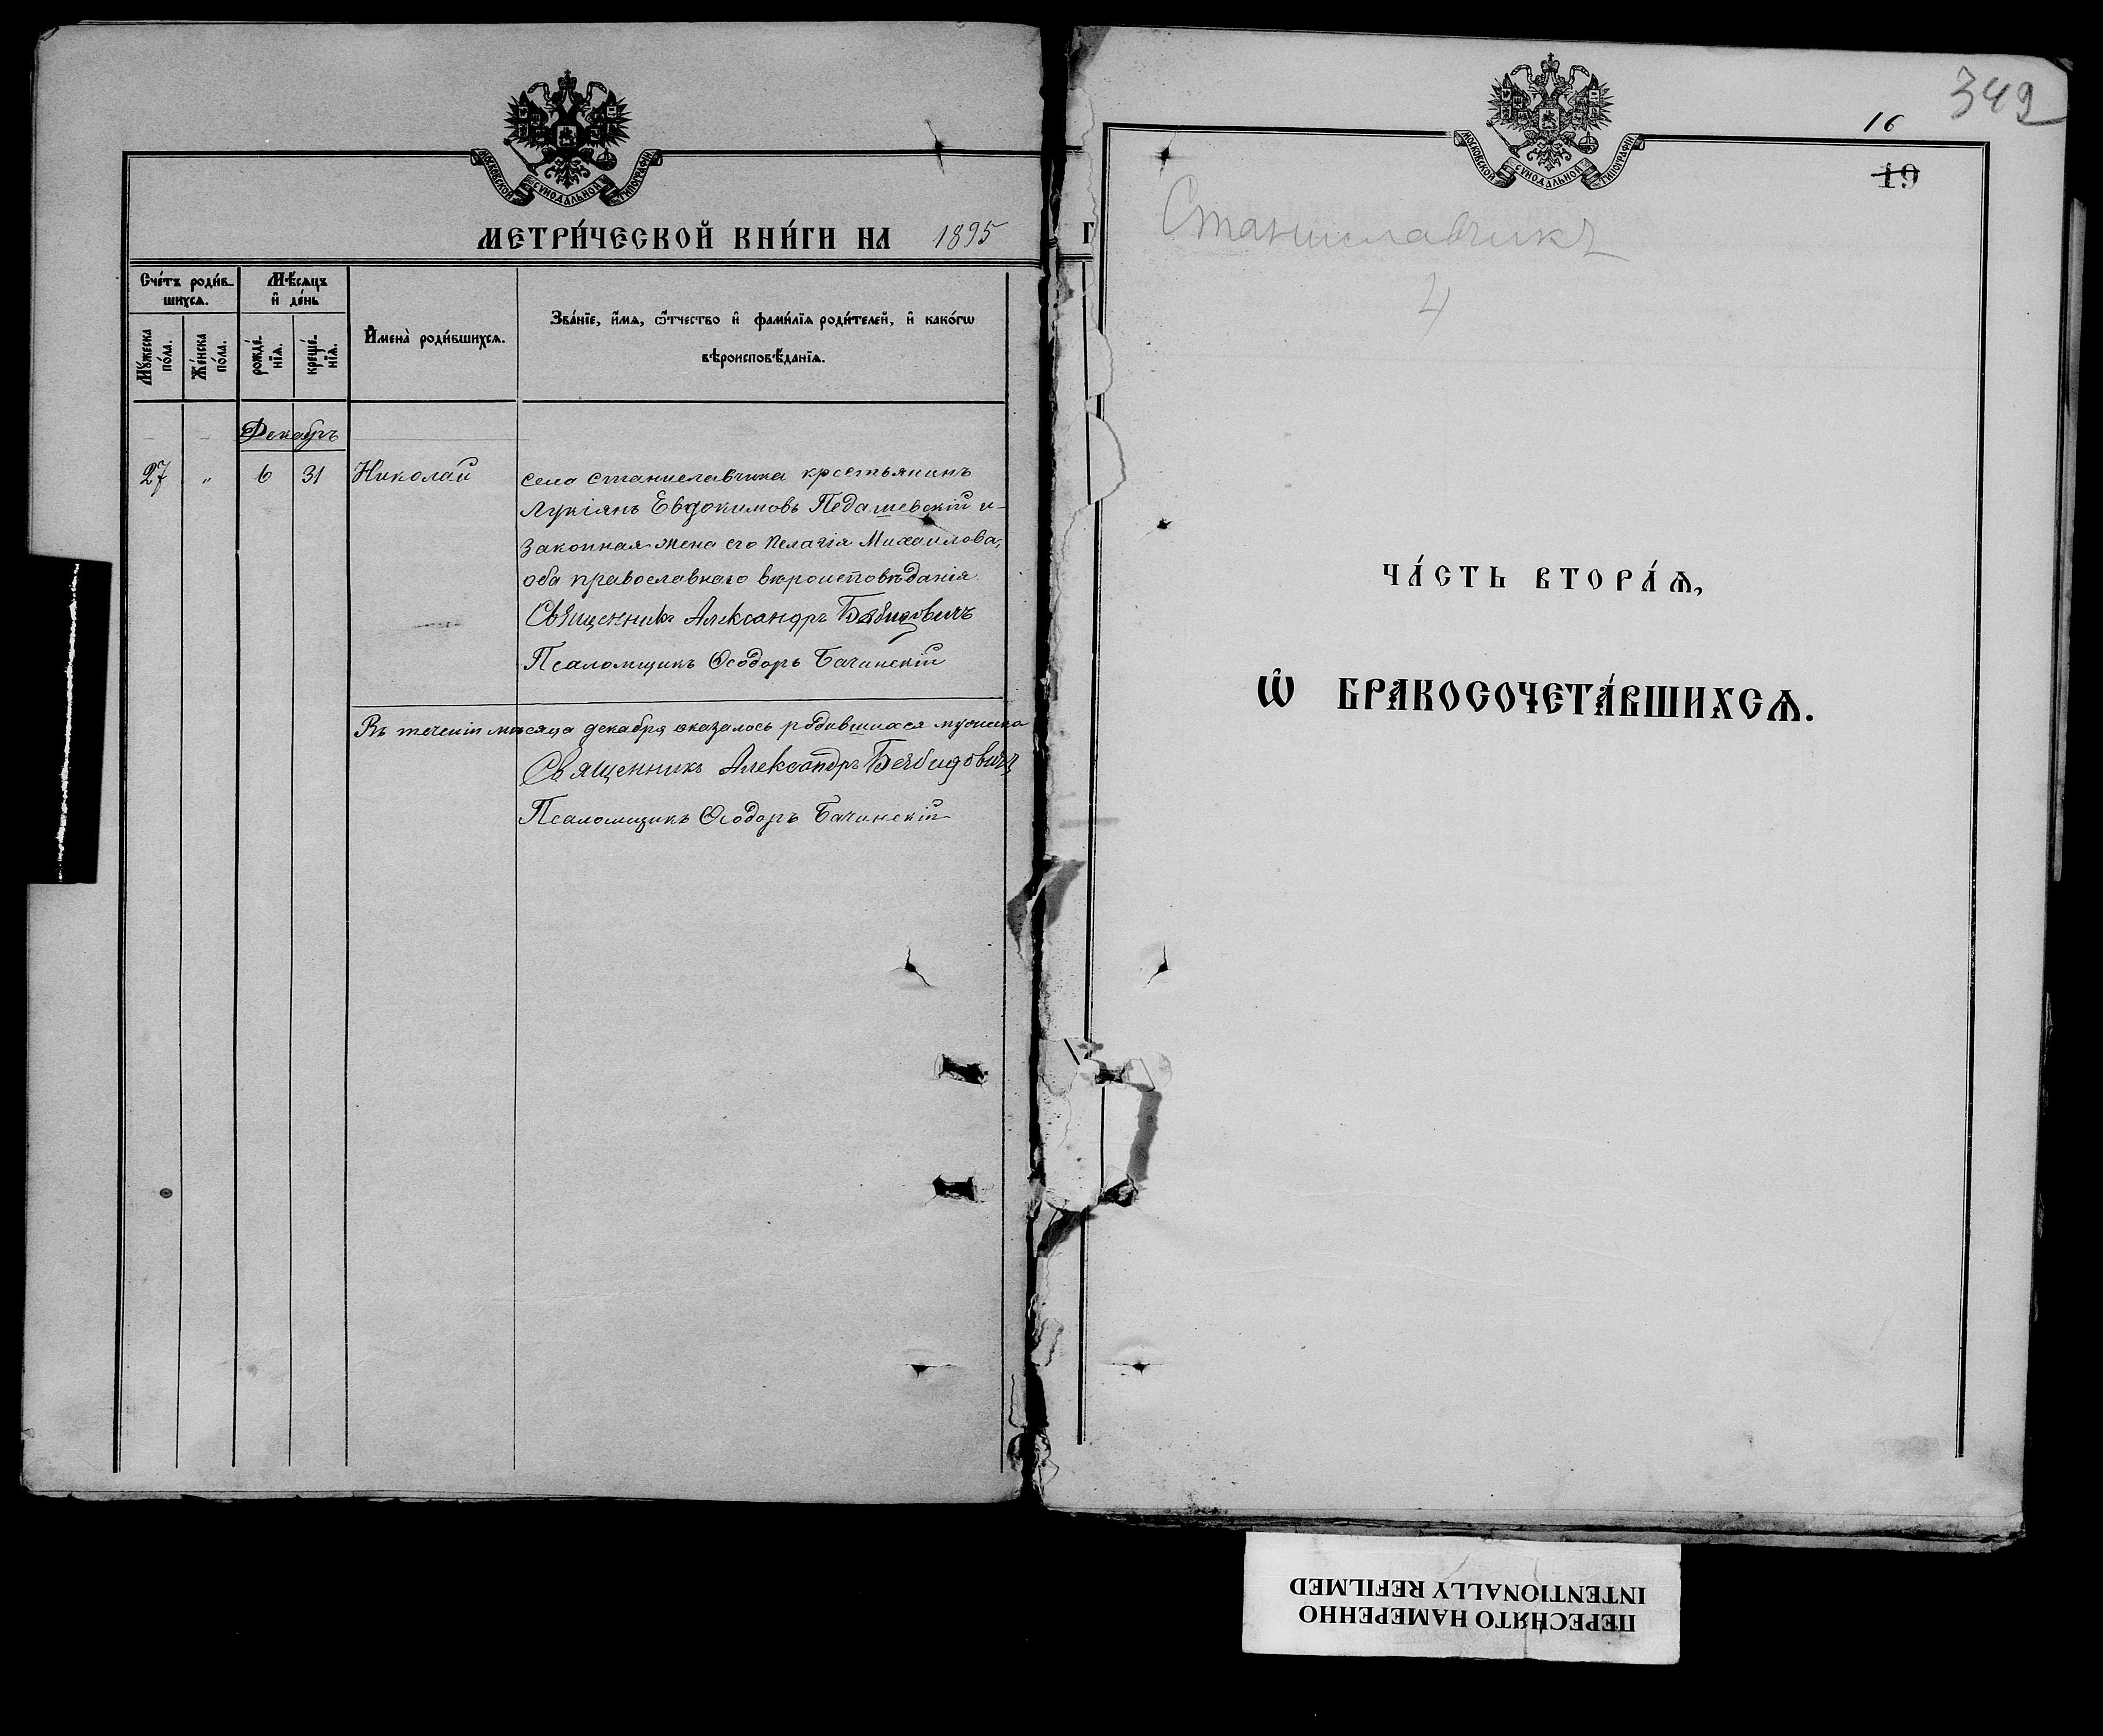 МОСКОВСКОЙ СѴНОДАЛЬНОЙ ТИПОГРАФІИ
МЕТРИ́ЧЕСКОЙ КНИ́ГИ НА 1895
Сче́тъ роди́вшихсѧ.
Мѣ́сѧцъ и҆ де́нь
Мꙋ́жеска по́ла.
Же́нска по́ла.
рожде́нїѧ.
креще́нїѧ.
И҆мена̀ роди́вшихсѧ.
Зва́нїе, и҆́мѧ, ѻ҆́тчество и҆ фами́лїѧ роди́телей, и҆ како́гѡ
вѣроисповѣ́данїѧ.
Декабрь
27 " 6 31 Николай
села Станиславчика крестьянинъ
Лукіянъ Евдокимовъ Педашевскій и
законная жена его Пелагія Михаилова,
оба православнаго вѣроисповѣданія
Священникъ Александръ
Псаломщикъ Ѳеодоръ Бачинскій
Въ теченіи мѣсяца декабря оказалось родившихся мужеска
Священникъ Александръ
Псаломщикъ Ѳеодоръ Бачинскій
Г
МОСКОВСКОЙ СѴНОДАЛЬНОЙ ТИПОГРАФІИ
349
16
19
Станиславчикъ
4
ЧА́СТЬ ВТОРА́Ѧ,
Ѽ БРАКОСОЧЕТА́ВШИХСѦ.
ПЕРЕСНЯТО НАМЕРЕННО
INTENTIONALLY REFILMED